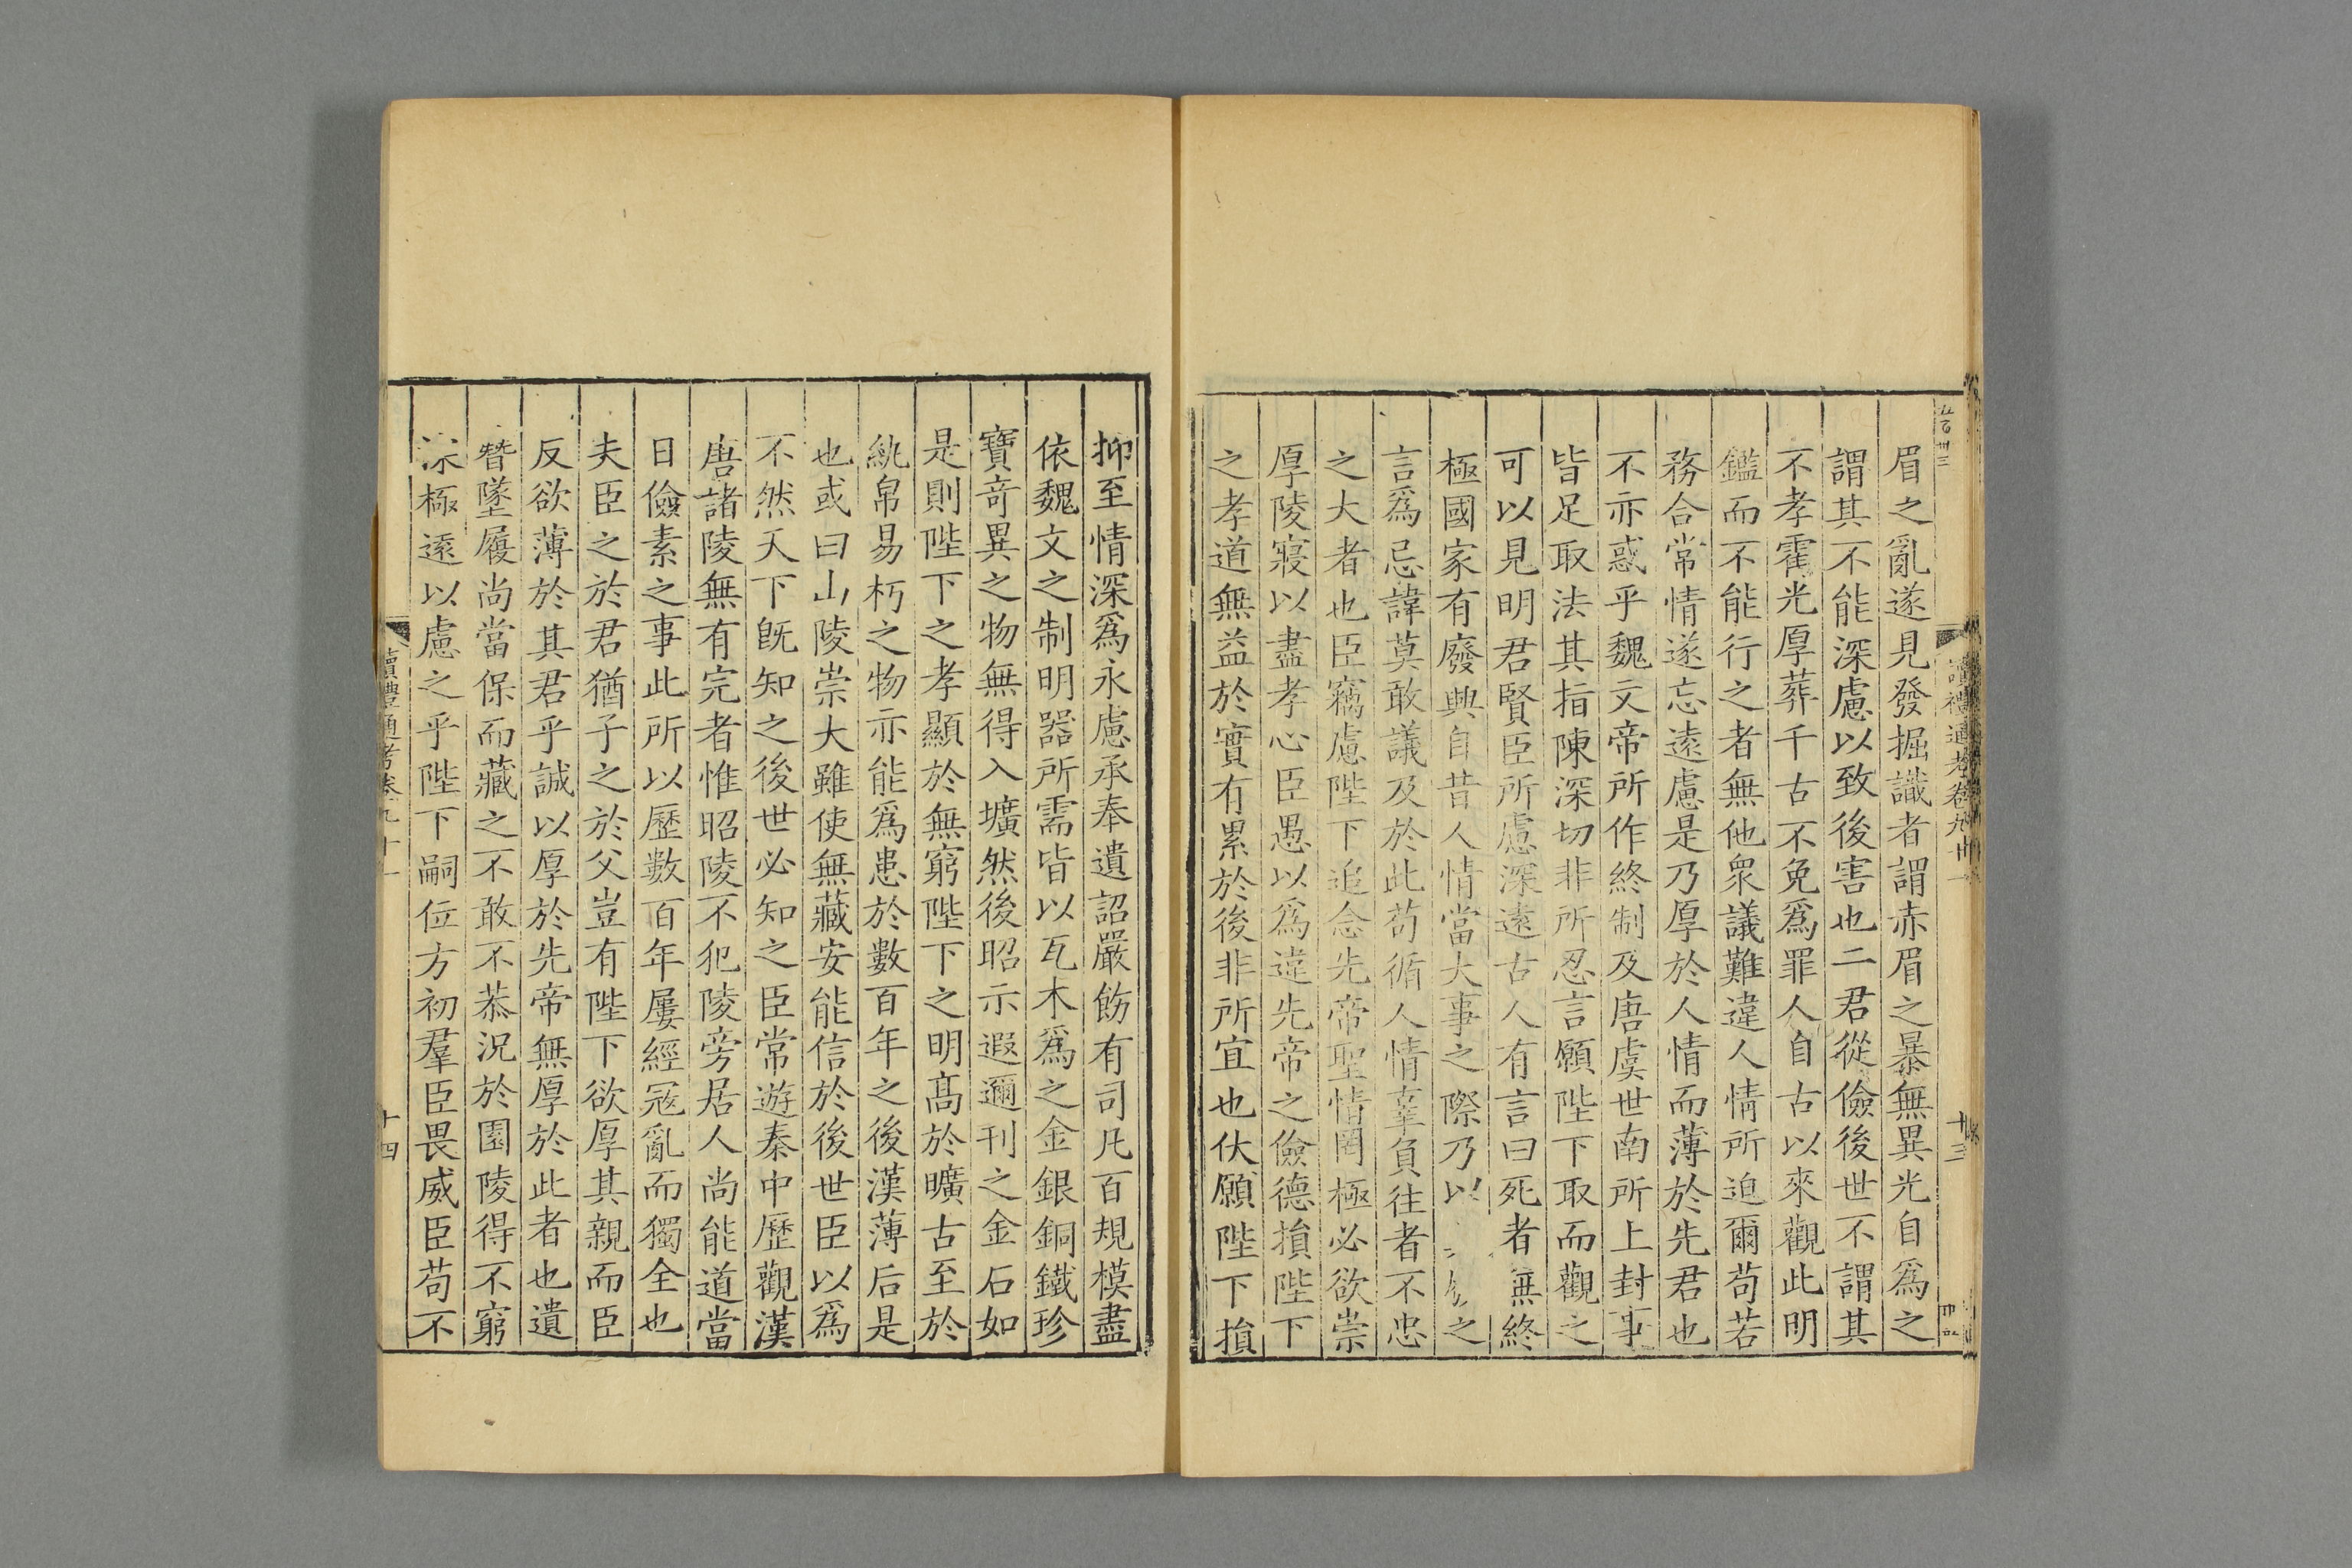 眉之亂遂見發掘識者謂赤眉之暴無異光自爲之
謂其不能深慮以致後害也二君從儉後世不謂其
不孝霍光厚葬千古不免爲罪人自古以來觀此明
鑑而不能行之者無他衆議難違人情所迫爾苟若
務合常情遂忘遠慮是乃厚於人情而薄於先君也
不亦惑乎魏文帝所作終制及唐虞世南所上封事
皆足取法其指陳深切非所忍言願陛下取而觀之
可以見明君賢臣所慮深遠古人有言曰死者無終
極國家有廢興自昔人情當大事之際乃以之
言爲忌諱莫敢議及於此苟循人情辜負往者不忠
之大者也臣竊慮陛下追念先帝聖情罔極必欲崇
厚陵寢以盡孝心臣愚以爲違先帝之儉德損陛下
之孝道無益於實有累於後非所宜也伏願陛下損
讀禮通考卷九十一
十三
抑至情深爲永慮承奉遺詔嚴飭有司凡百規模盡
依魏文之制明器所需皆以瓦木爲之金銀銅鐵珍
寶奇異之物無得入壙然後昭示遐邇刊之金石如
是則陛下之孝顯於無窮陛下之明高於曠古至於
紈帛易朽之物亦能爲患於數百年之後漢薄后是
也或曰山陵崇大雖使無藏安能信於後世臣以爲
不然天下既知之後世必知之臣常遊秦中歷觀漢
唐諸陵無有完者惟昭陵不犯陵旁居人尚能道當
日儉素之事此所以歷數百年屢經寇亂而獨全也
夫臣之於君猶子之於父豈有陛下欲厚其親而臣
反欲薄於其君乎誠以厚於先帝無厚於此者也遺
簪墜履尚當保而藏之不敢不恭況於園陵得不窮
深極遠以慮之乎陛下嗣位方初羣臣畏威臣苟不
讀禮通考卷九十一
十四